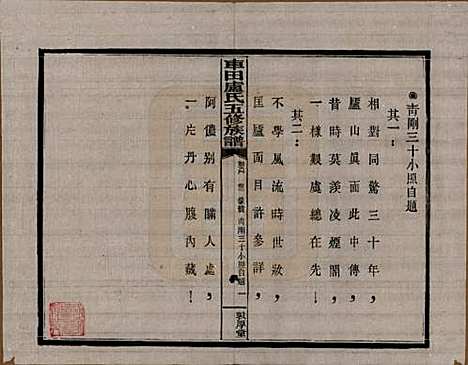 青剛三十小照自題
其一：
相對同驚三十年，
廬山眞面此中傳，
昔時莫羨凌煙閣，
一樣觀處總在先！
其二：
不學風流時世妝，
匡廬面目許參詳，
阿儂別有瞞人處，
一片丹心腹內藏！
車田盧氏五修族譜
青剛三十小照自題
一
敦厚堂